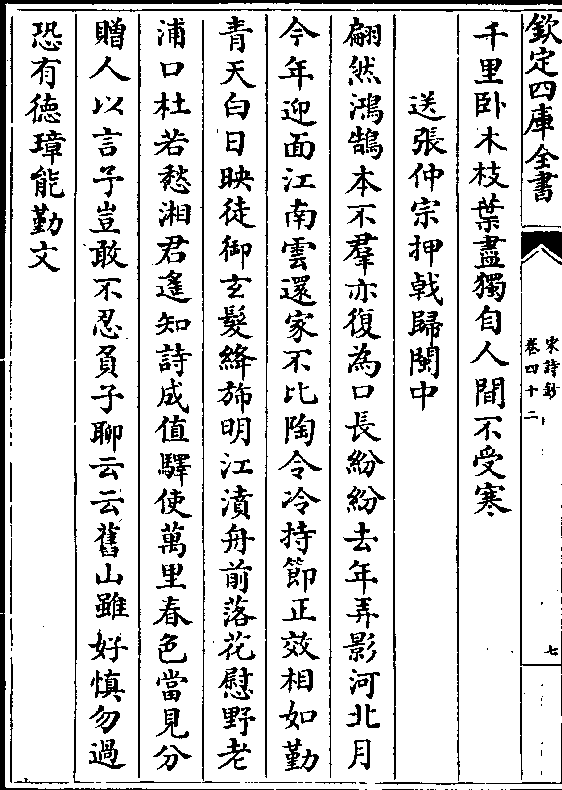 欽定四庫全書
宋詩鈔
卷四十二
七
千里卧木枝葉盡獨自人間不受寒
送張仲宗押戟歸閩中
翩然鴻鵠本不羣亦復為口長紛紛去年弄影河北月
今年迎面江南雲還家不比陶令冷持節正效相如勤
青天白日映徒御玄髮絳斾明江濆舟前落花慰野老
浦口杜若愁湘君遙知詩成值驛使萬里春色當見分
贈人以言予豈敢不忍負子聊云云舊山雖好慎勿過
恐有德璋能勤文